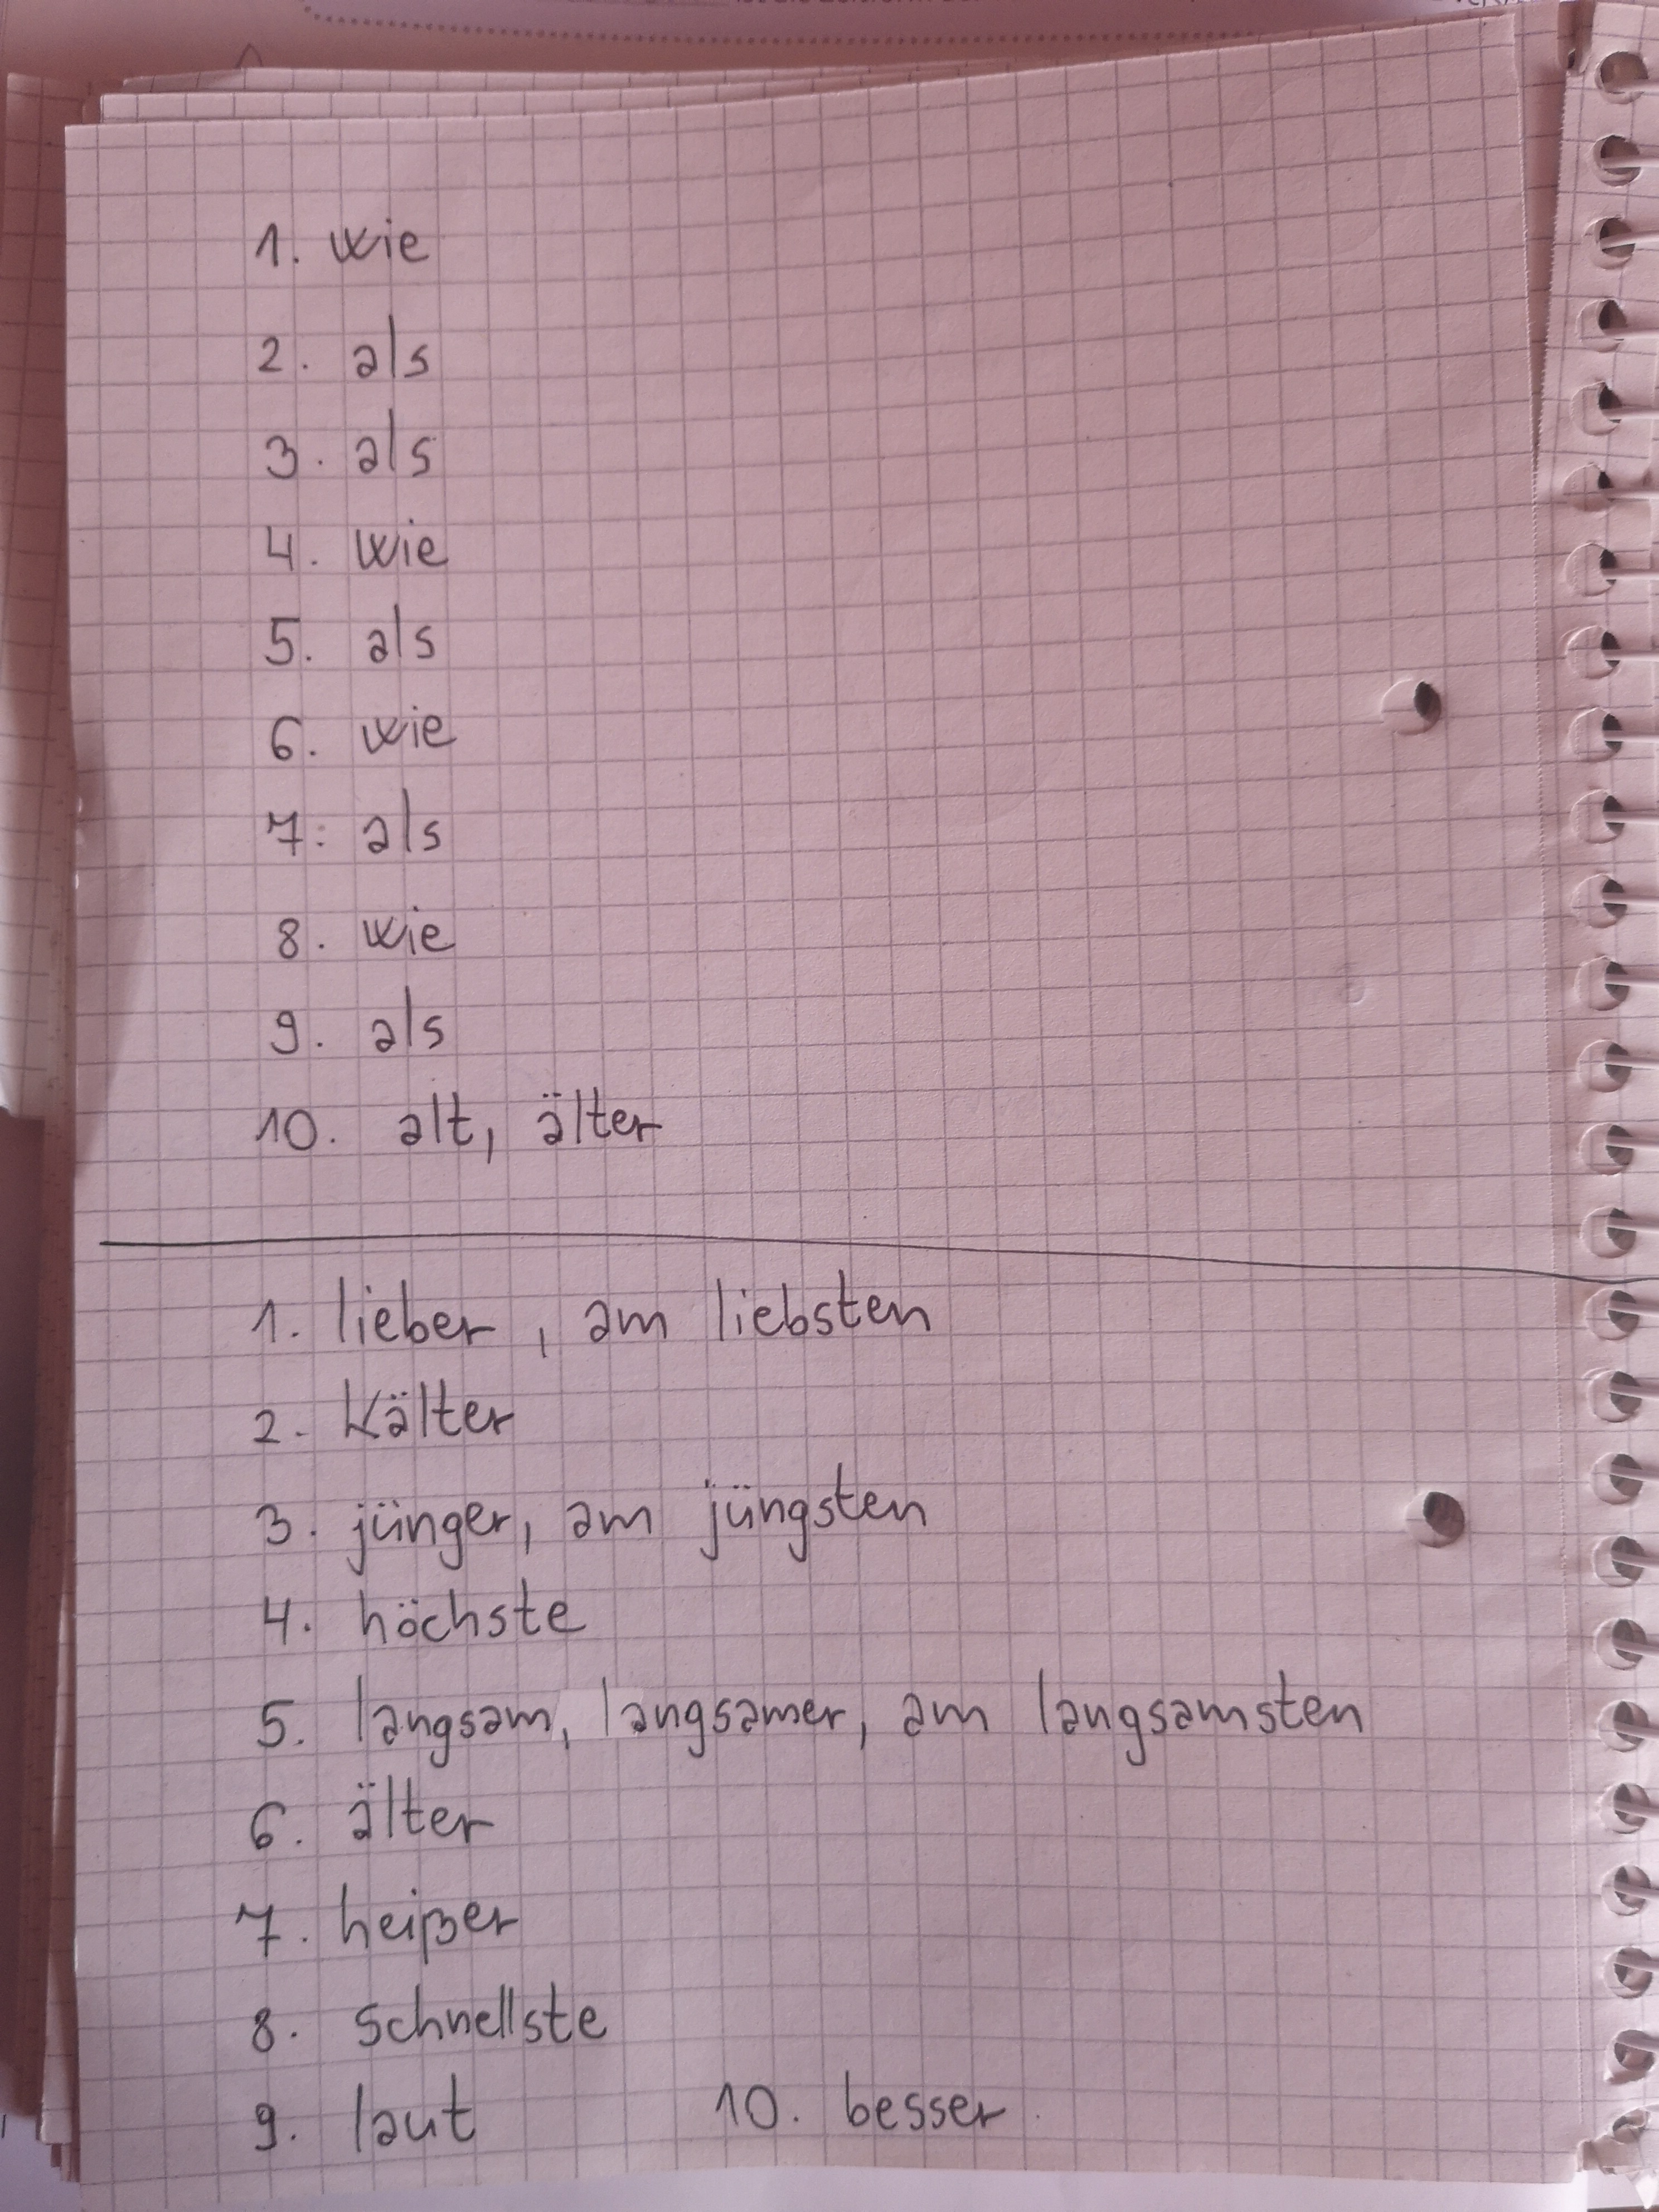 1. wie
2. als
3. als
4. wie
5. als
6. wie
7. als
8. wie
9. als
10. alt, älter
1. lieber, am liebsten
2. Kälter
3. jünger, am jüngsten
4. höchste
5. langsam, langsamer, am langsamsten
6. älter
7. heißer
8. schnellste
9. laut 10. besser